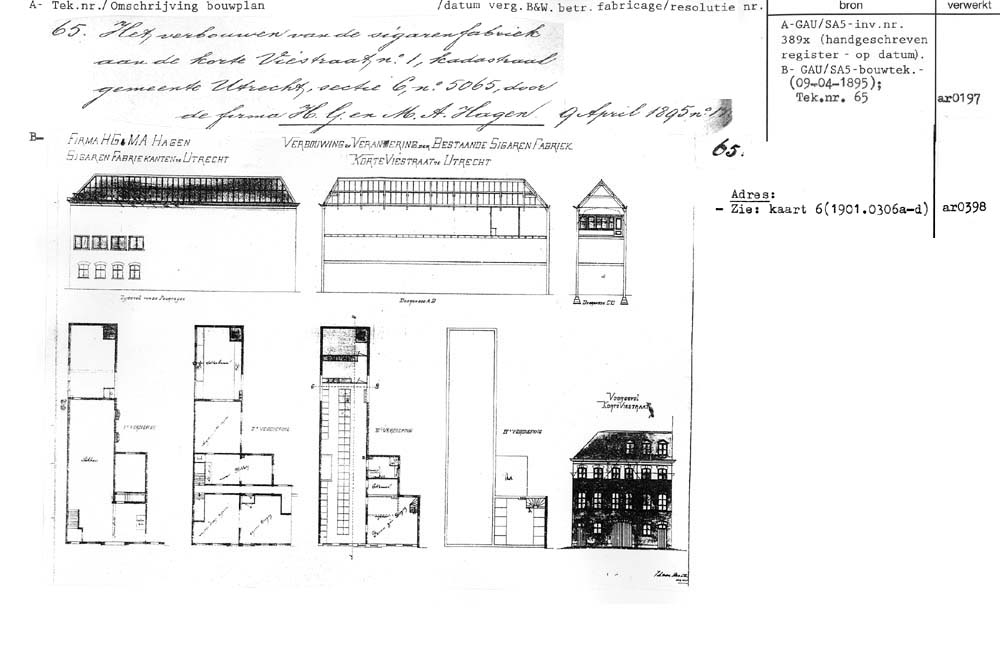 A- Tek.nr./Omschrijving bouwplan /datum verg.B&W. betr. fabricage/resolutie nr. bron verwerkt
65. Het verbouwen van de sigarenfabriek
aan de korte Viestraat, nº. 1, kadastraal
gemeente Utrecht, sectie C, nº. 5065, door
de firma H. G. en M. A. Hagen. 9 April 1895 nº.
A-GAU/SA5-inv.nr.
389x (handgeschreven
register - op datum).
B- GAU/SA5-bouwtek.-
(09-04-1895);
Tek.nr. 65
ar0197
B-
FIRMA HG & MA HAGEN
SIGAREN FABRIEKANTEN TE UTRECHT
VERBOUWING EN VERANDERING DER BESTAANDE SIGAREN FABRIEK
KORTE VIESTRAAT TE UTRECHT
65.
Adres:
- Zie: kaart 6(1901.0306a-d)
ar0398
Doorsnede A B
Doorsnede C D
1e VERDIEPING
2e VERDIEPING
IIIe VERDIEPING
VOORGEVEL
KORTE VIESTRAAT